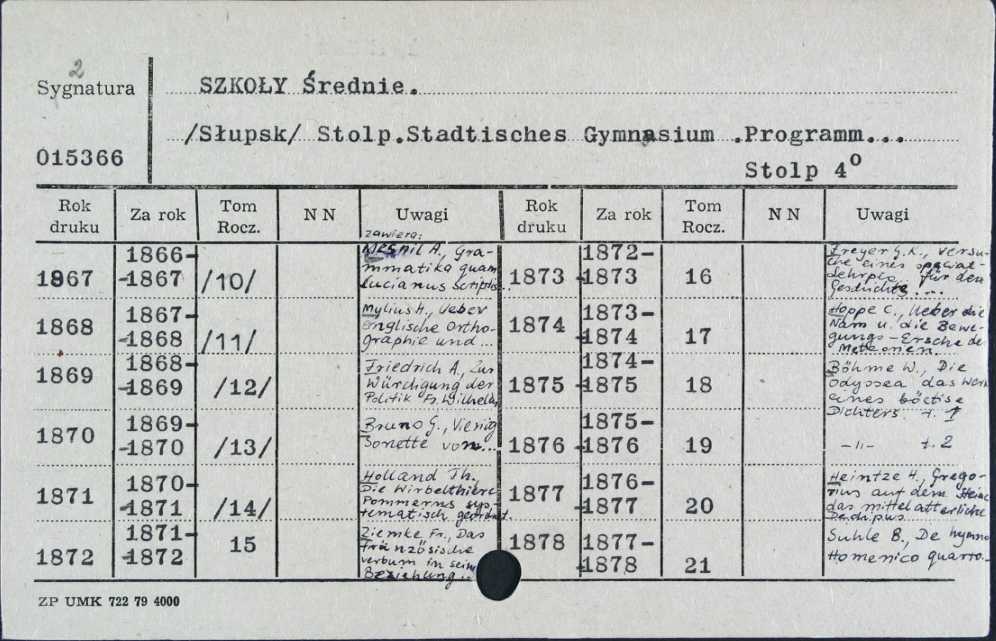 2
Sygnatura
SZKOŁY Średnie.
/Słupsk/ Stolp.Stadtisches Gymnasium .Programm...
015366
Stolp 4o
Rok druku Za rok Tom Rocz. NN Uwagi Rok druku Za rok Tom Rocz. NN Uwagi
zawiera:
1867 1866-
-1867 /10/ Mesnil A., Gra-
mmatika quam
Lucianus scriptis..
1868 1867-
-1868 /11/ Mylius H., Ueber
englische Ortho-
graphie und...
1869 1868-
-1869 /12/ Friedrich A., Zur
Würdigung der
Politik Fr. Wilhelms
1870 1869-
-1870 /13/ Bruno G., Vierzig
Sonette von...
1871 1870-
-1871 /14/ Holland Th.
Die Wirbelthiere
Pommerns sys-
tematisch geordnet.
1872 1871-
-1872 15 Ziemke Fr., Das
französische
verbum in sein
Beziehung..
1873 1872-
-1873 16 Freyer G.K., Versu-
che eines
Lehrpl. für den
Geschichts....
1874 1873-
-1874 17 Hoppe C., Ueber die
Nam u. die Bewe-
gungs-Ersche de
Meteoren.
1875 1874-
-1875 18 Böhme W., Die
Odyssea das Werk
eines böotise
Dichters t. 1
1876 1875-
-1876 19 -"- t. 2
1877 1876-
-1877 20 Heintze H., Grego-
rius auf dem Steine
das mittelatterliche
Oedipus
1878 1877-
-1878 21 Suhle B., De hymno
Homenico quarto..
ZP UMK 722 79 4000